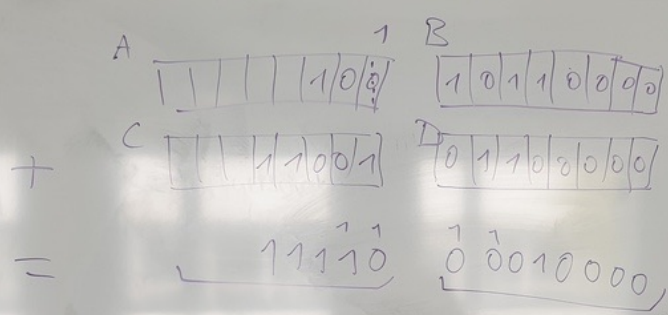 1
A | | | | | 1 | 0 | 0 B 1 | 0 | 1 | 1 | 0 | 0 | 0 | 0
+ C | | | 1 | 1 | 0 | 0 | 1 D 0 | 1 | 1 | 0 | 0 | 0 | 0 | 0
1 1 1 1
= 11110 0 0010000